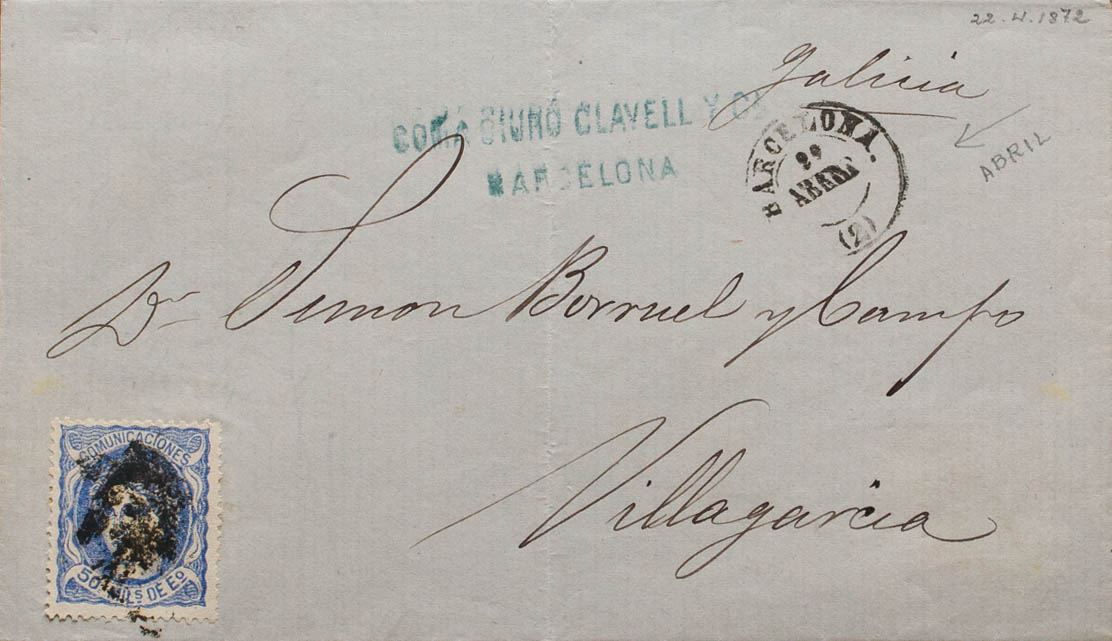 22.4.1872
Galicia
COMA CIURÓ CLAVELL Y Cª
BARCELONA
BARCELONA.
ABRIL
(2)
Dn Simon Borruel y Campo
Villagarcia
COMUNICACIONES
50 MILS DE Eº